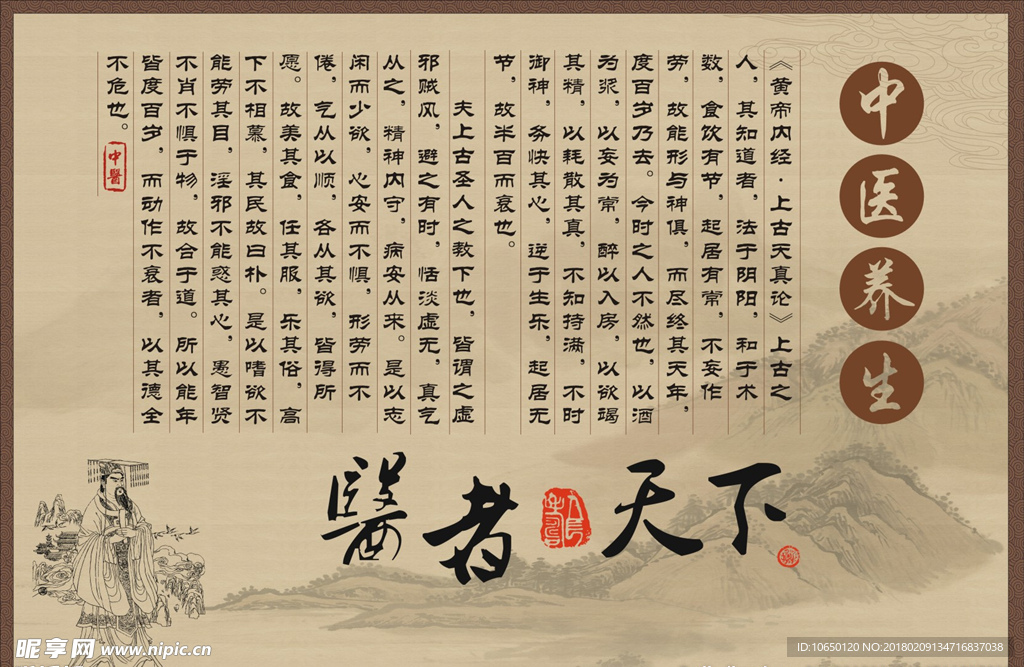 中医养生
《黄帝内经·上古天真论》上古之
人，其知道者，法于阴阳，和于术
数，食饮有节，起居有常，不妄作
劳，故能形与神俱，而尽终其天年，
度百岁乃去。今时之人不然也，以酒
为浆，以妄为常，醉以入房，以欲竭
其精，以耗散其真，不知持满，不时
御神，务快其心，逆于生乐，起居无
节，故半百而衰也。
夫上古圣人之教下也，皆谓之虚
邪贼风，避之有时，恬淡虚无，真气
从之，精神内守，病安从来。是以志
闲而少欲，心安而不惧，形劳而不
倦，气从以顺，各从其欲，皆得所
愿。故美其食，任其服，乐其俗，高
下不相慕，其民故曰朴。是以嗜欲不
能劳其目，淫邪不能惑其心，愚智贤
不肖不惧于物，故合于道。所以能年
皆度百岁，而动作不衰者，以其德全
不危也。
中醫
醫者天下
昵享网 www.nipic.cn
ID:10650120 NO:20180209134716837038